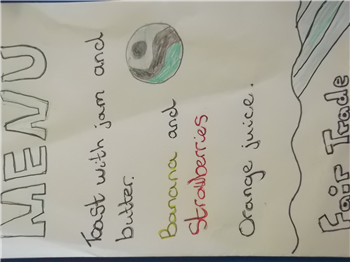 MENU
Toast with jam and
butter.
Banana and
Strawberries
Orange juice.
Fair Trade